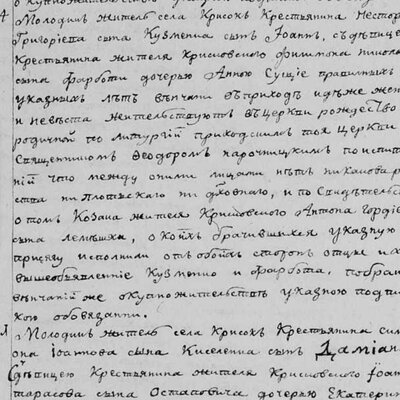 4 Молодикъ житель села Крисокъ Крестьянина Нестор
Григоріева сына Кузменка сынъ Іоаннъ, съ дѣвице
Крестьянина жителя Крисковского Филимона
сына Фарботи дочерью Анною Сущіе правильныхъ
указныхъ лѣтъ вѣнчани въ приходѣ идѣже жен
и невѣста жительствуютъ въ церкви рождество
родичной по литургіи приходскимъ тоя церкви
Священникомъ Феодоромъ нарочницкимъ по испит
ніи что между оними лицами нѣтъ ни кановро
ства ни плотскаго ни дховнаго, и по свидѣтельс
о томъ Козака жителя Крисковского Антона Гордіе
сына лемѣшка, о коихъ бračившихся указную
присягу исполнили отъ обоихъ сторонъ отцы ихъ
вышеобявленніе Кузменко и Фарбота, побра
вѣнчаніи же окупножительствѣ указною подпи
кою обовязанни.
Молодикъ житель села Крисокъ Крестьянина Сим
она Іоаннова сына Киселенка сынъ Даміан
Съ дѣвицею Крестьянина жителя Крисковского Іоан
тарасова сына Остаповича дочерью Екатерин